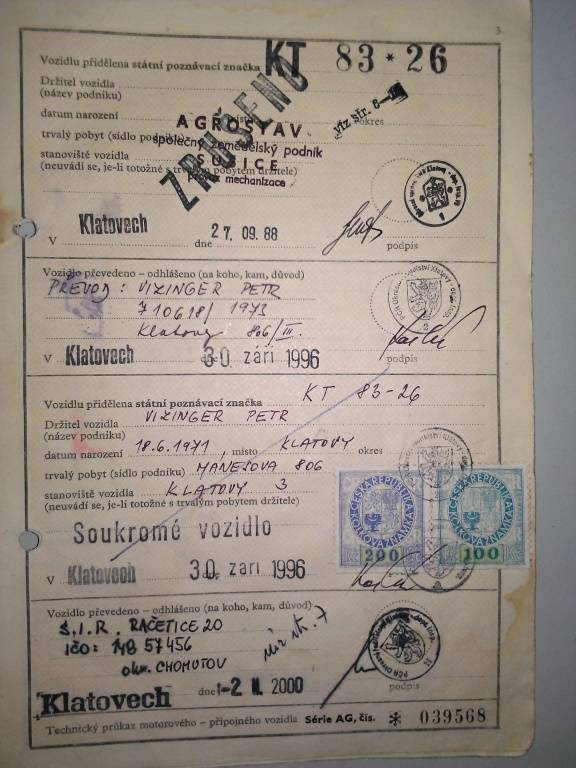 3
Vozidlu přidělena státní poznávací značka KT 83 * 26
Držitel vozidla
(název podniku)
ZRUŠENO
viz str. 6
datum narození místo okres
AGROSTAV
trvalý pobyt (sídlo podniku)
společný zemědělský podnik
stanoviště vozidla SUŠICE
(neuvádí se, je-li totožné s trvalým pobytem držitele)
mechanizace
V Klatovech dne 27. 09. 88 podpis
Vozidlo převedeno – odhlášeno (na koho, kam, důvod)
PŘEVOD: VIZINGER PETR
710618/ 1973
Klatovy 806/III.
V Klatovech dne 30. září 1996 podpis
Vozidlu přidělena státní poznávací značka KT 83-26
Držitel vozidla VIZINGER PETR
(název podniku)
datum narození 18.6.1971, místo KLATOVY okres
trvalý pobyt (sídlo podniku) MÁNESOVA 806
stanoviště vozidla KLATOVY 3
(neuvádí se, je-li totožné s trvalým pobytem držitele)
ČESKÁ REPUBLIKA KOLKOVÁ ZNÁMKA 200
ČESKÁ REPUBLIKA KOLKOVÁ ZNÁMKA 100
Soukromé vozidlo
V Klatovech 30. září 1996
Vozidlo převedeno – odhlášeno (na koho, kam, důvod)
Š.I.R. RAČETICE 20
IČO: 57456
okr. CHOMUTOV
viz str. 7
Klatovech dne -2 2000 podpis
Technický průkaz motorového – přípojného vozidla Série AG, čís. * 039568